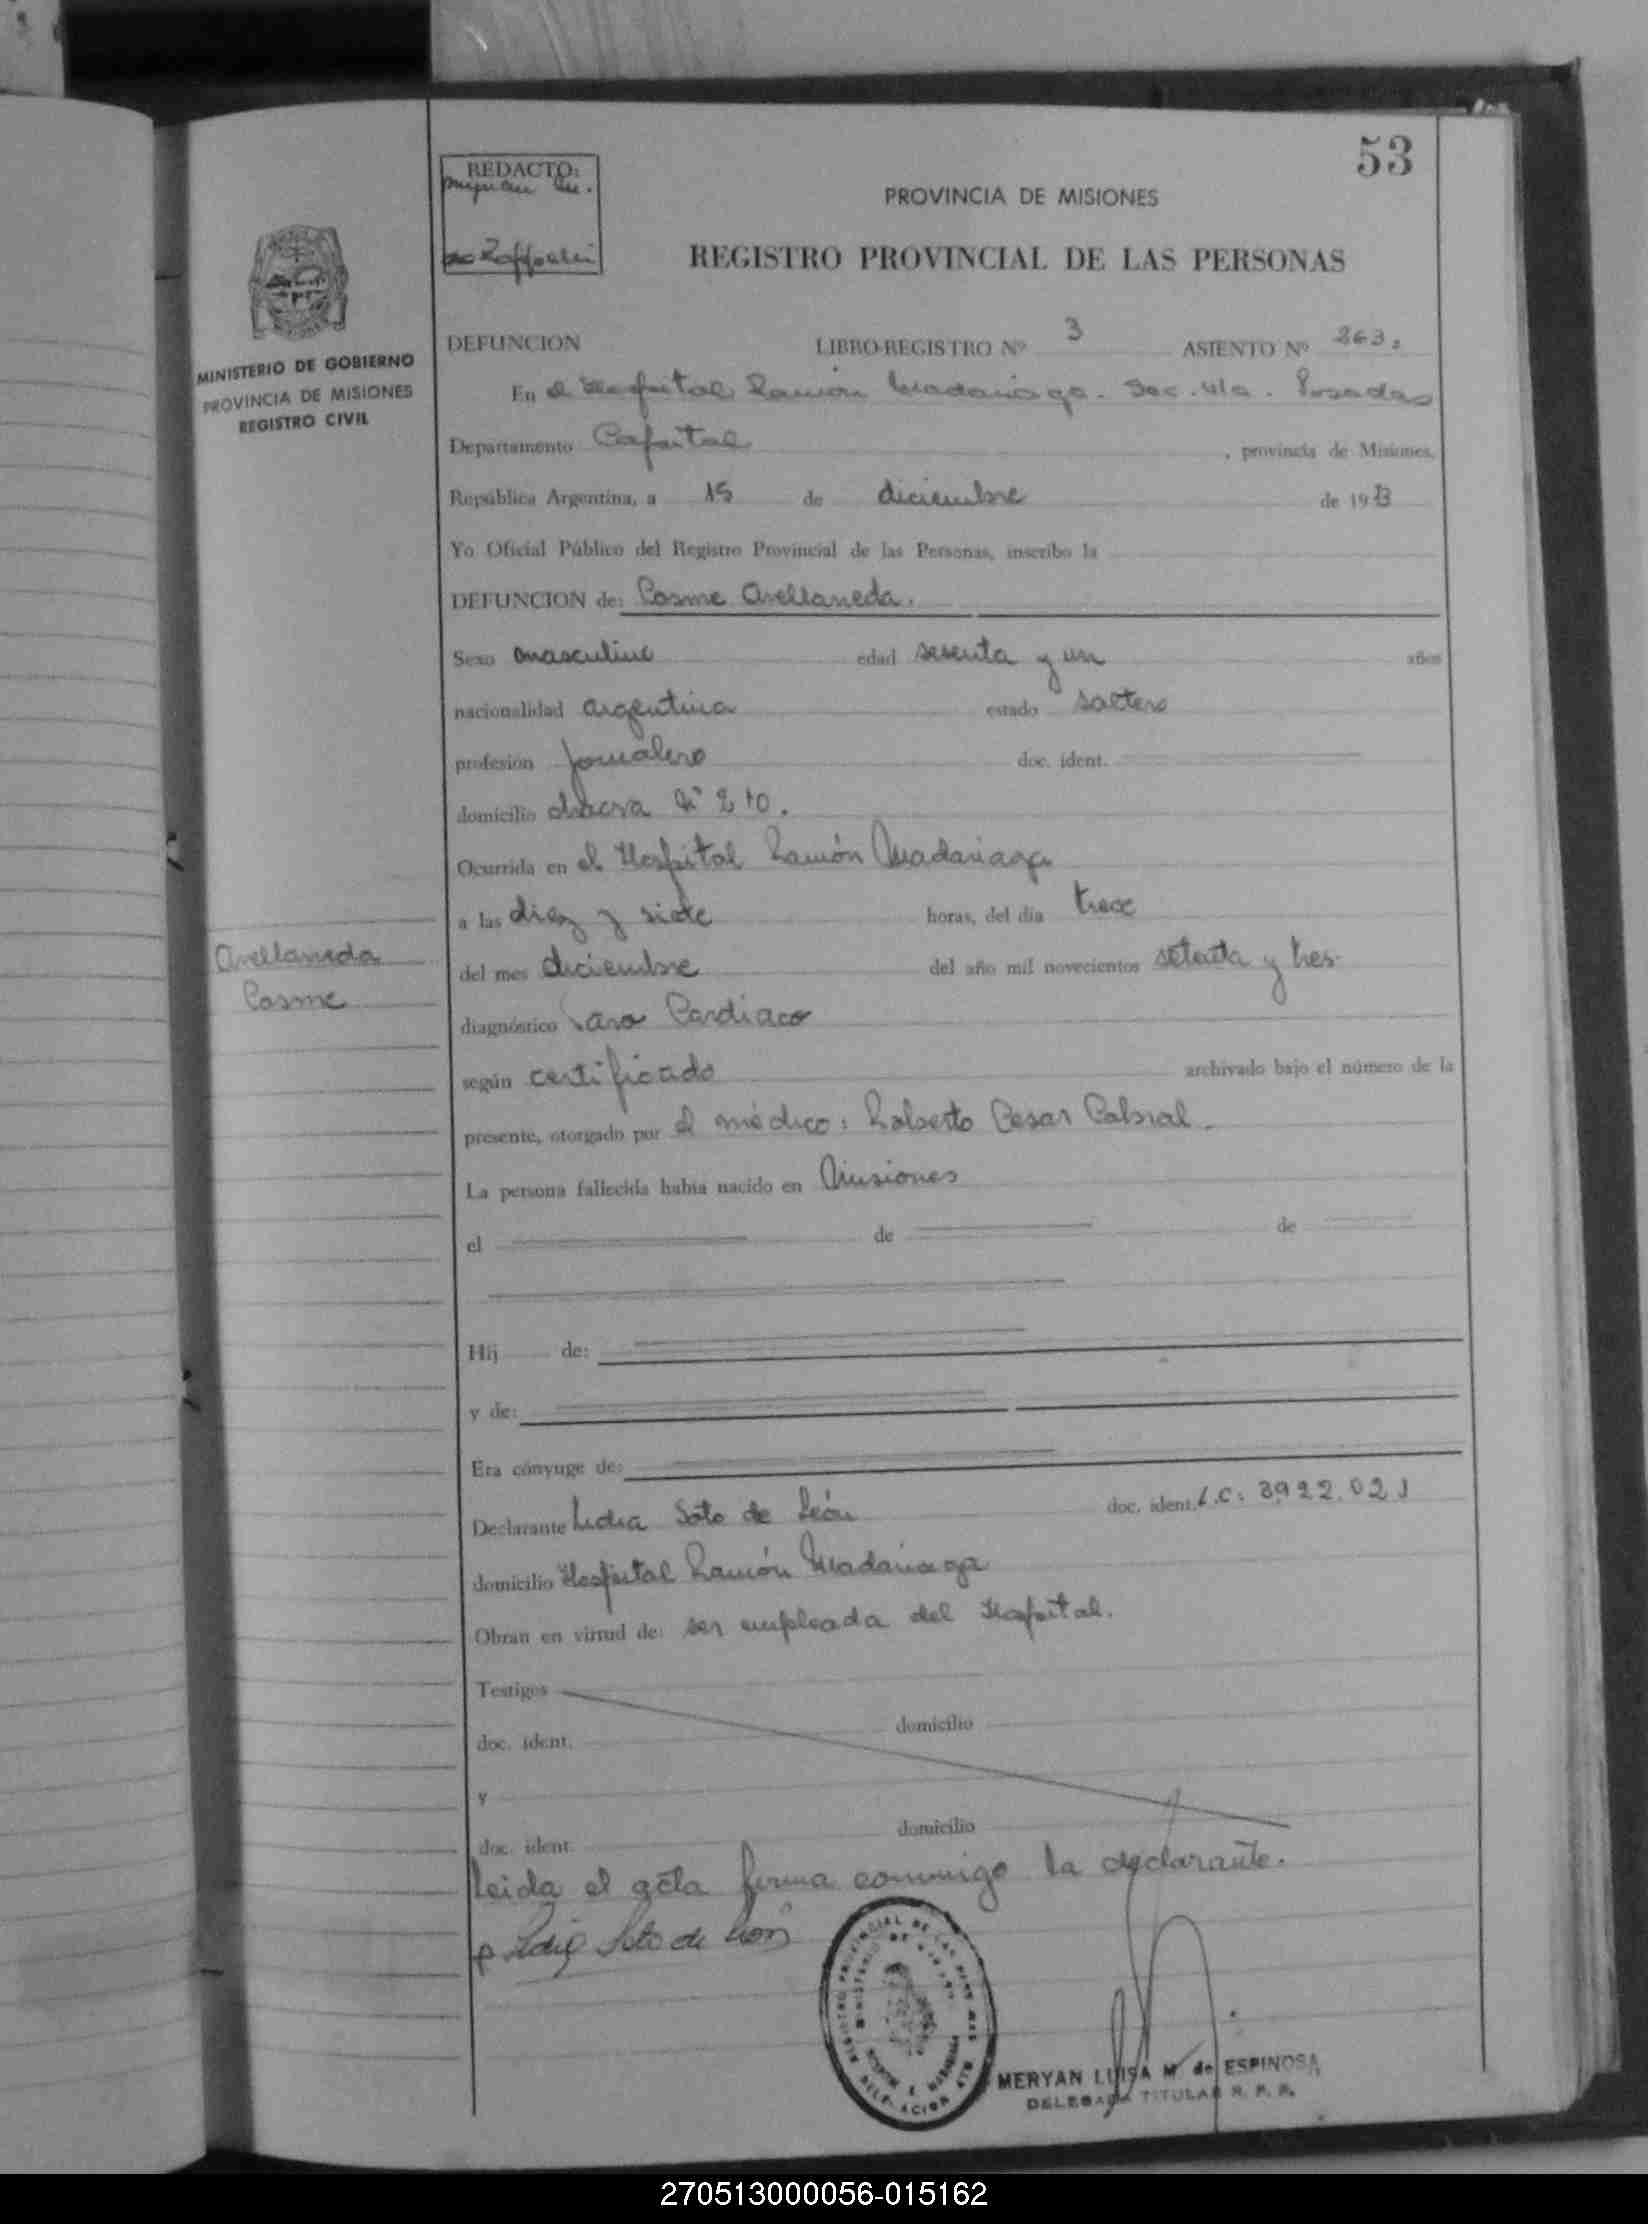 53
REDACTO:
PROVINCIA DE MISIONES
REGISTRO PROVINCIAL DE LAS PERSONAS
MINISTERIO DE GOBIERNO
PROVINCIA DE MISIONES
REGISTRO CIVIL
DEFUNCION LIBRO-REGISTRO Nº 3 ASIENTO Nº 263.
En el Hospital Ramón Madariaga. Sec. 4ta. Posadas
Departamento Capital , provincia de Misiones,
República Argentina, a 15 de diciembre de 1973
Yo Oficial Público del Registro Provincial de las Personas, inscribo la
DEFUNCION de: Cosme Avellaneda.
Sexo masculino edad sesenta y un años
nacionalidad argentina estado soltero
profesión jornalero doc. ident.
domicilio chacra Nº 210.
Ocurrida en el Hospital Ramón Madariaga
a las diez y siete horas, del día trece
Avellaneda
Cosme
del mes diciembre del año mil novecientos setenta y tres
diagnóstico Paro Cardiaco
según certificado archivado bajo el número de la
presente, otorgado por el médico: Roberto Cesar Cabral.
La persona fallecida había nacido en Misiones
el de de
Hij de:
y de:
Era cónyuge de:
Declarante Lidia Soto de León doc. ident. L.C: 3922.021
domicilio Hospital Ramón Madariaga
Obran en virtud de: ser empleada del Hospital.
Testigos
doc. ident. domicilio
y
doc. ident. domicilio
Leida el acta firma conmigo la declarante.
Lidia Soto de León
REGISTRO PROVINCIAL DE LAS PERSONAS
MINISTERIO DE GOBIERNO
MERYAN LUISA M. de ESPINOSA
DELEGADA TITULAR R. P. P.
270513000056-015162